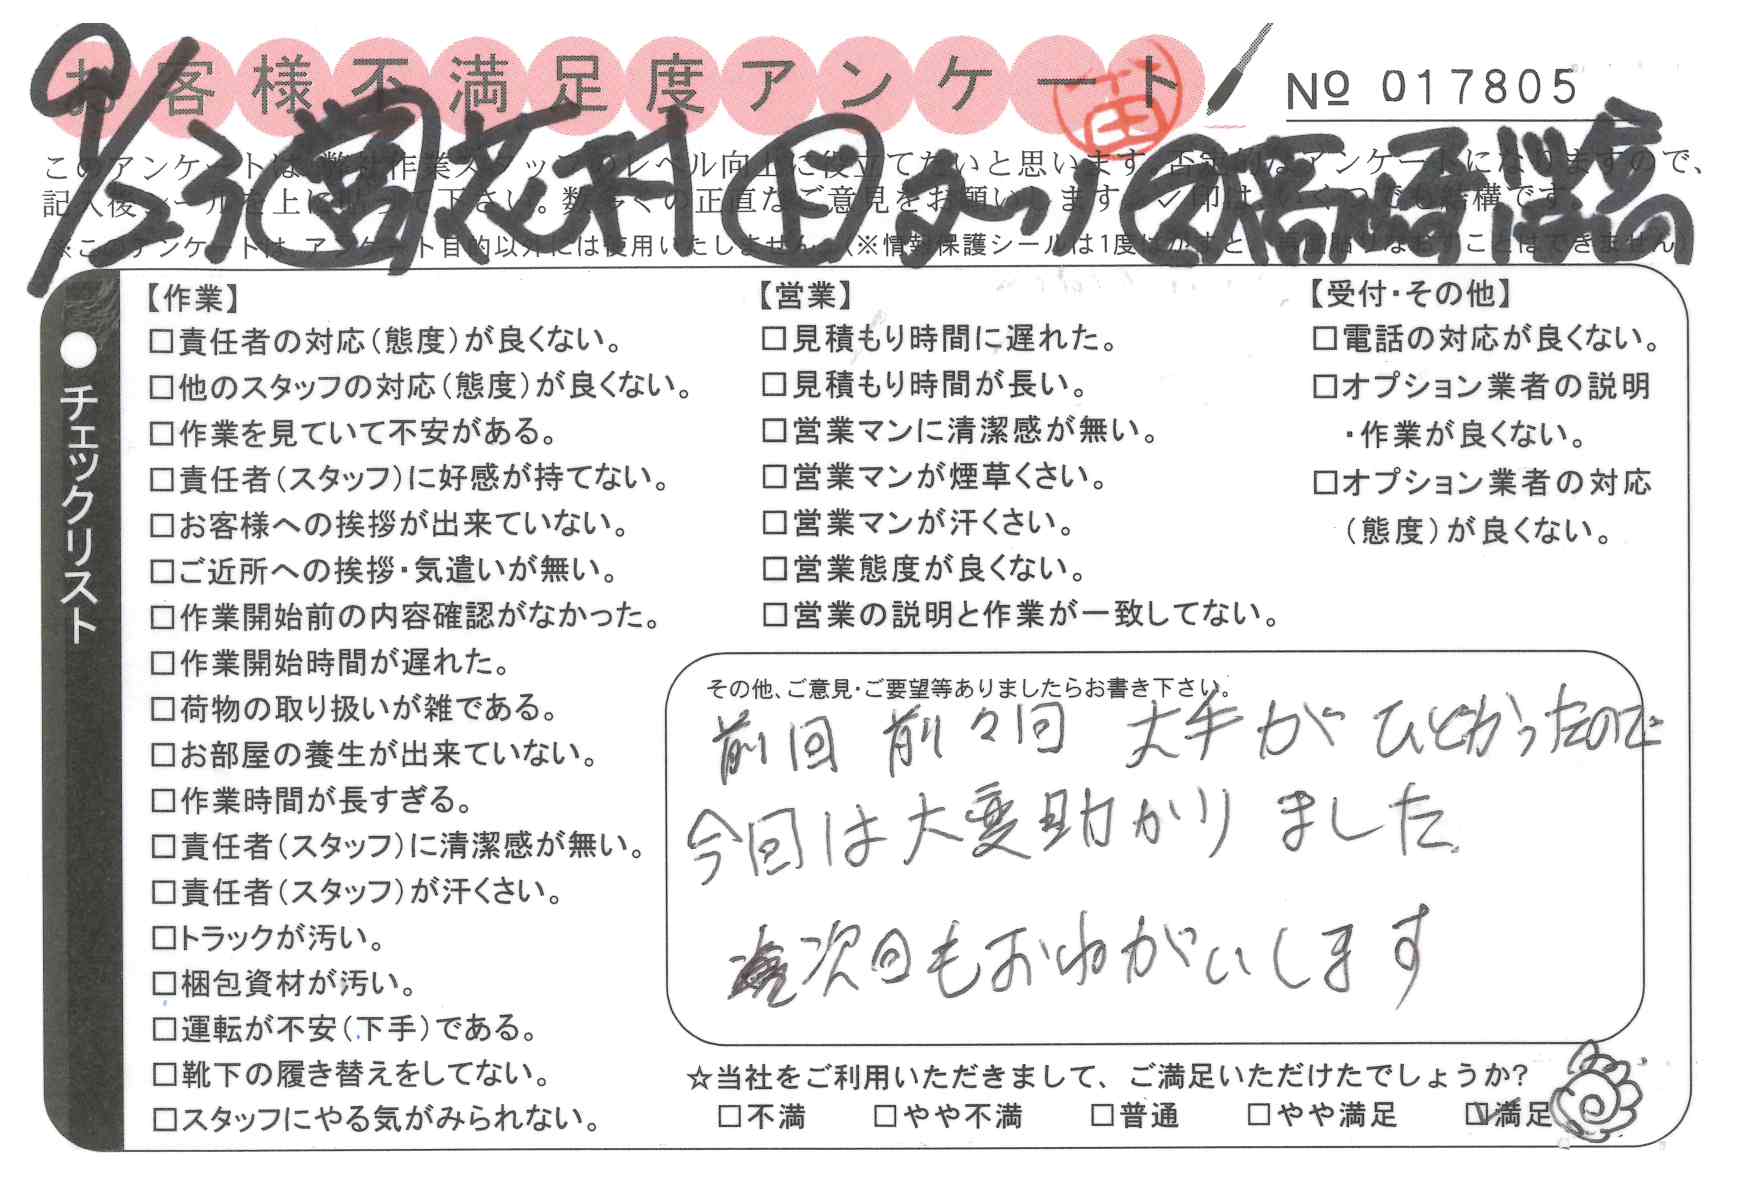 お客様不満足度アンケート
No 017805
9/23 営 花村 日 タツ ② 高崎
このアンケートは、弊社作業スタッフのレベル向上に役立てたいと思います。否定的なアンケートになりますので、
記入後シールを上に貼って下さい。数多くの正直なご意見をお願いします。レ印は、いくつでも結構です。
※このアンケートは、アンケート目的以外には使用いたしません。(※情報保護シールは1度はがすと、再度貼りなおすことはできません)
●チェックリスト
【作業】
□責任者の対応(態度)が良くない。
□他のスタッフの対応(態度)が良くない。
□作業を見ていて不安がある。
□責任者(スタッフ)に好感が持てない。
□お客様への挨拶が出来ていない。
□ご近所への挨拶・気遣いが無い。
□作業開始前の内容確認がなかった。
□作業開始時間が遅れた。
□荷物の取り扱いが雑である。
□お部屋の養生が出来ていない。
□作業時間が長すぎる。
□責任者(スタッフ)に清潔感が無い。
□責任者(スタッフ)が汗くさい。
□トラックが汚い。
□梱包資材が汚い。
□運転が不安(下手)である。
□靴下の履き替えをしてない。
□スタッフにやる気がみられない。
【営業】
□見積もり時間に遅れた。
□見積もり時間が長い。
□営業マンに清潔感が無い。
□営業マンが煙草くさい。
□営業マンが汗くさい。
□営業態度が良くない。
□営業の説明と作業が一致してない。
【受付・その他】
□電話の対応が良くない。
□オプション業者の説明
・作業が良くない。
□オプション業者の対応
(態度)が良くない。
その他、ご意見・ご要望等ありましたらお書き下さい。
前回 前々回 大手が ひどかったので
今回は大変助かりました。
次回もおねがいします
☆当社をご利用いただきまして、ご満足いただけたでしょうか?
□不満 □やや不満 □普通 □やや満足 ☑満足